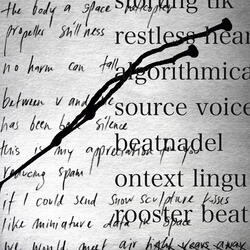 the body a space helicopter
propeller stillness
no harm can fall
between v and
has been silence
this is my appreciation
reducing spam
if I could send snow sculpture kisses
like miniature data in space
we would meet air light years away
restless hear
algorithmica
source voice
beatnadel
ontext lingu
rooster beat